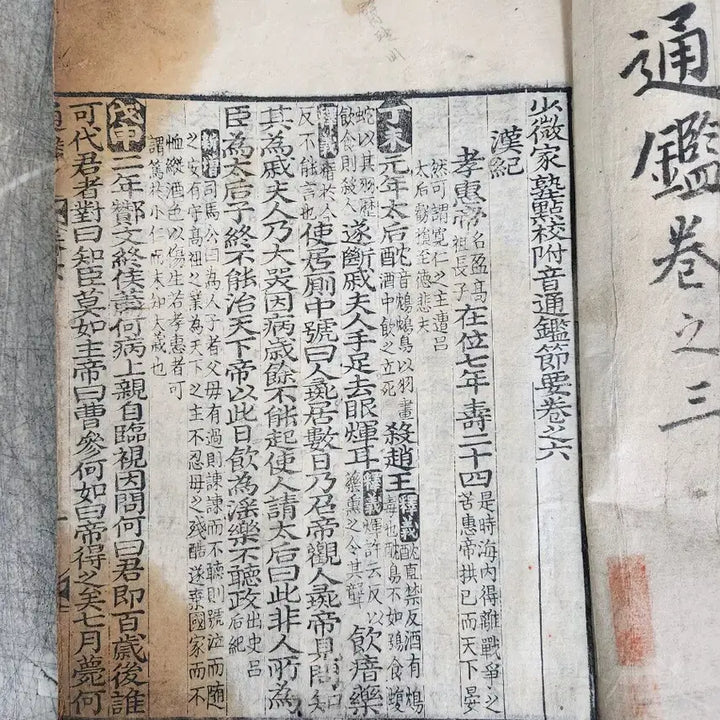 通鑑卷之三
少微家塾點校附音通鑑節要卷之六
漢紀
孝惠帝名盈高祖長子在位七年壽二十四是時海内得離戰爭之苦惠帝拱已而天下晏
然可謂寬仁之主遭吕太后虧損至德悲夫
丁未元年太后酖沈音鴆鴆鳥以羽畫酒中飲之立死殺趙王釋義酖直禁反酒有鴆毒也酖鳥不如鴞食蝮
蛇以其羽歷飲食則殺人遂斷戚夫人手足去眼煇耳釋義煇許云反以藥熏之令其聾飲瘖藥
釋義瘖於今反不能言也使居厠中號曰人彘居數日乃召帝觀人彘帝見問知
其為戚夫人乃大哭因病歲餘不能起使人請太后曰此非人所為
臣為太后子終不能治天下帝以此日飲為滛樂不聽政出史吕后紀
新增司馬公曰為人子者父母有過則諫諫而不聽則號泣而隨
之安有守高祖之業為天下之主不忍母之殘酷遂棄國家而不
恤縱酒色以傷生若孝惠者可
謂篤於小仁而未知大義也
戊申二年酇文終侯蕭何病上親自臨視因問何曰君即百歲後誰
可代君者對曰知臣莫如主帝曰曹參何如曰帝得之矣七月薨何